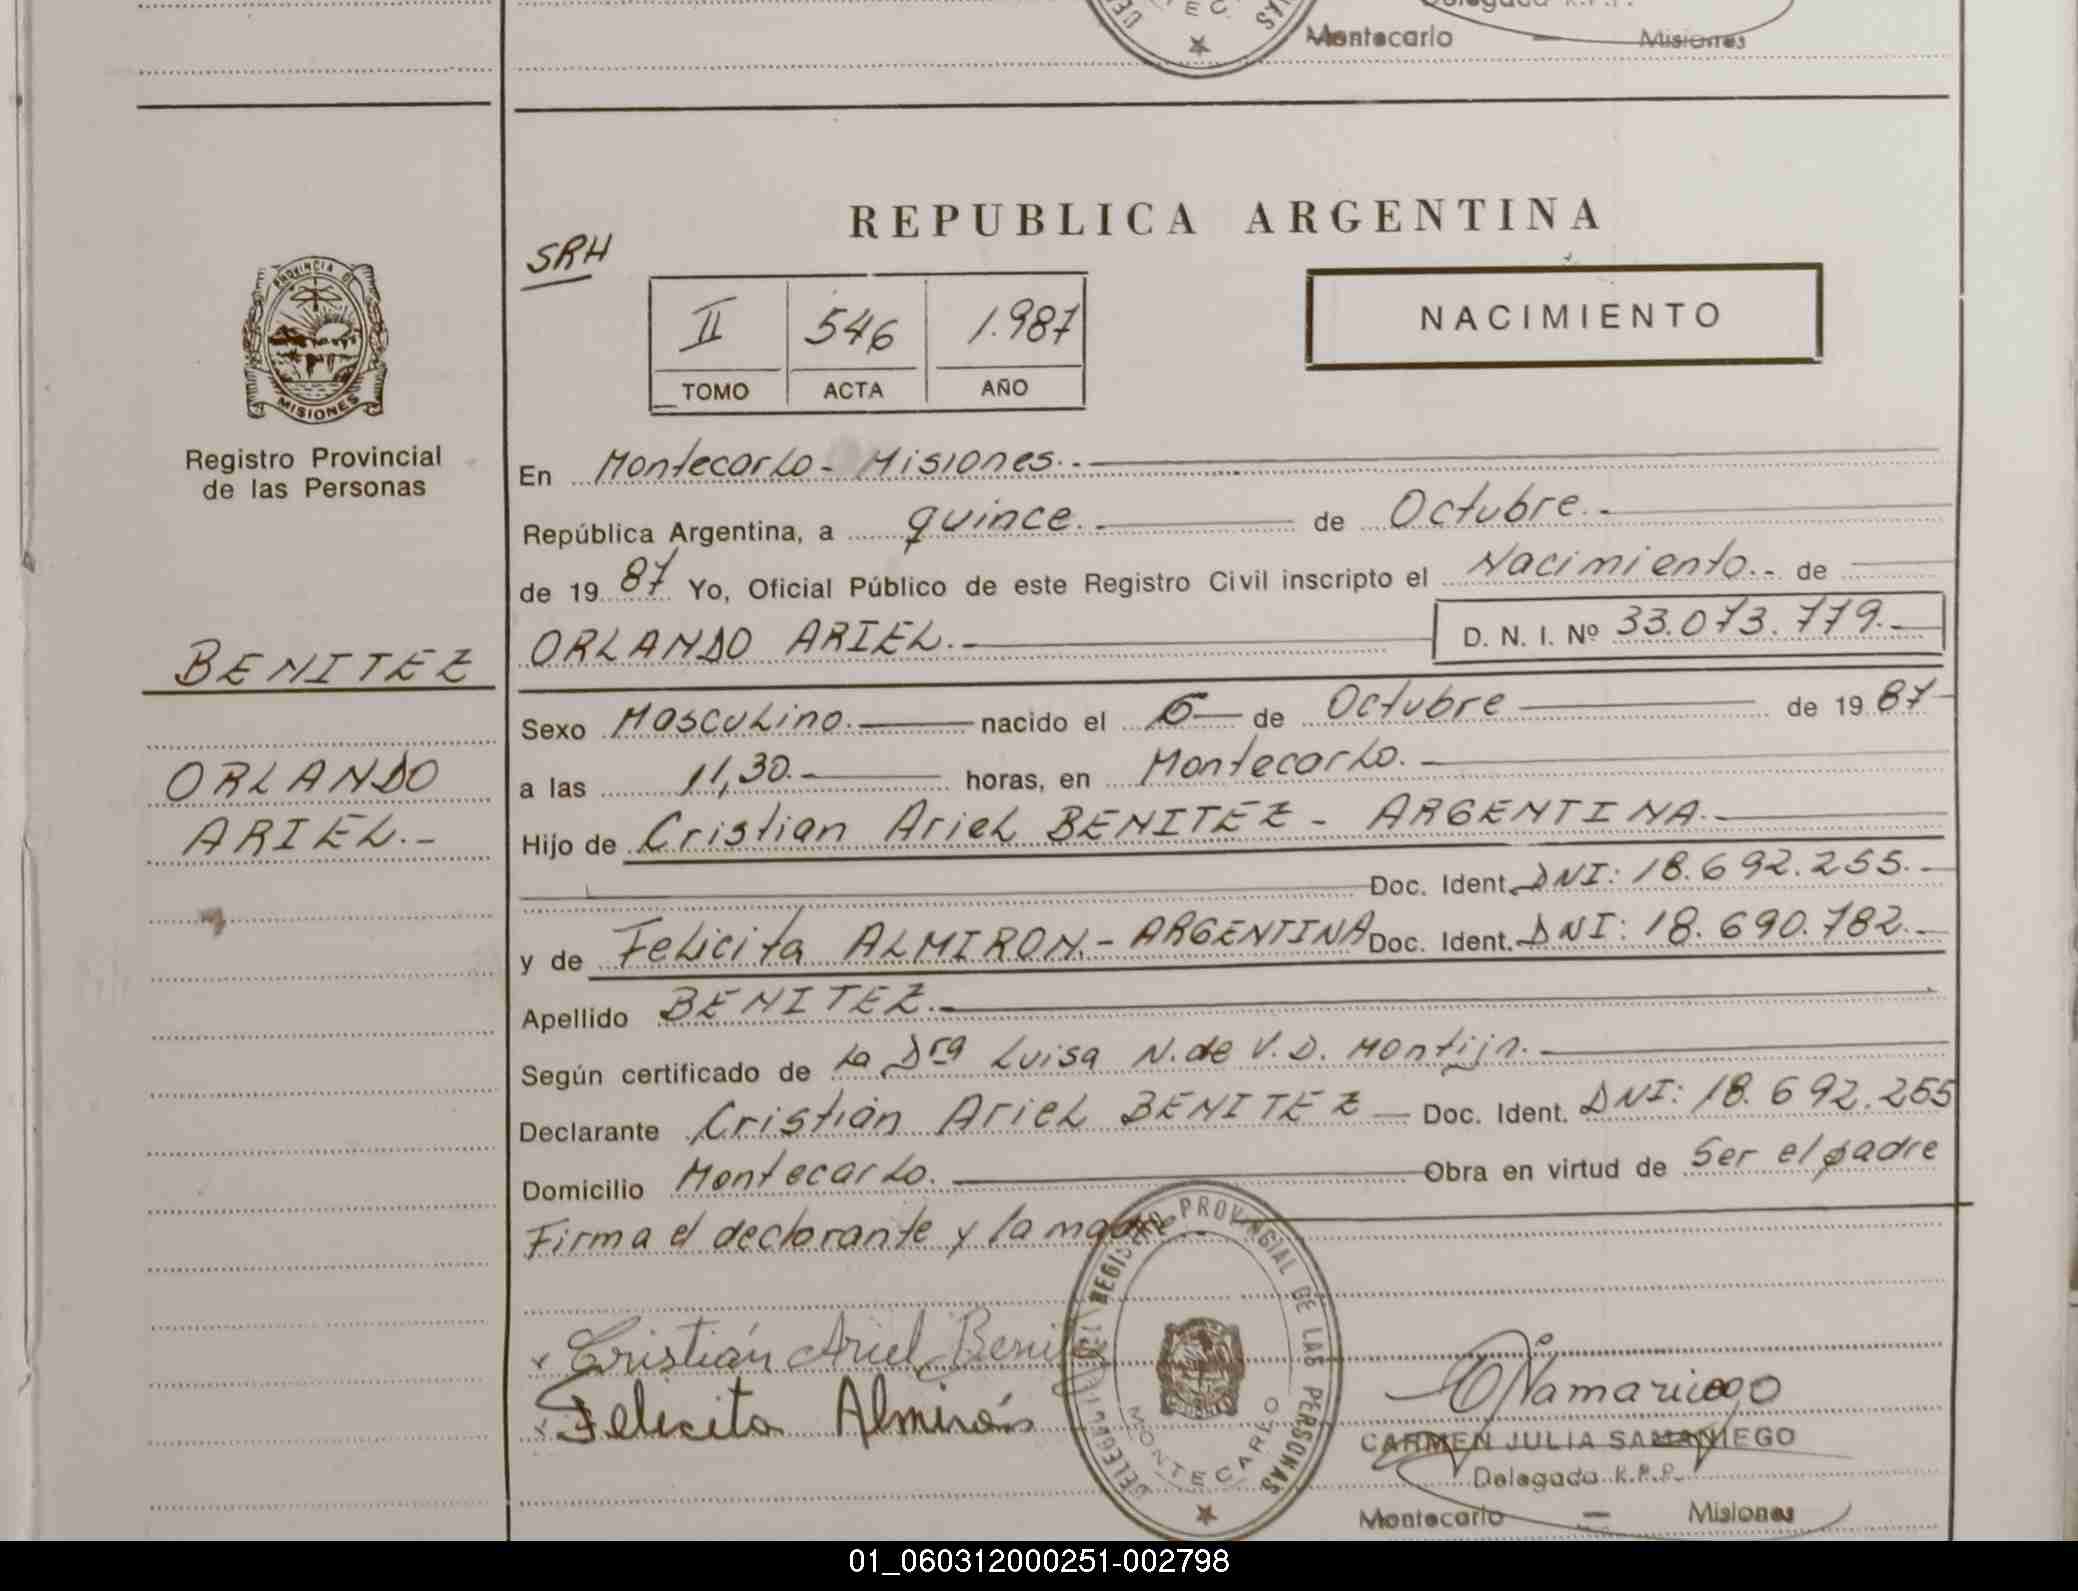 Montecarlo — Misiones
REPUBLICA ARGENTINA
SRH
II 546 1.987
TOMO ACTA AÑO
NACIMIENTO
PROVINCIA DE
MISIONES
Registro Provincial
de las Personas
BENITEZ
ORLANDO
ARIEL.-
En Montecarlo - Misiones.-
República Argentina, a quince.- de Octubre.-
de 19 87 Yo, Oficial Público de este Registro Civil inscripto el Nacimiento.- de
ORLANDO ARIEL.- D. N. I. Nº 33.073.779.-
Sexo Masculino.- nacido el 6 de Octubre de 19 87
a las 11,30.- horas, en Montecarlo.-
Hijo de Cristian Ariel BENITEZ - ARGENTINA.-
Doc. Ident. DNI: 18.692.255.-
y de Felicita ALMIRON.- ARGENTINA Doc. Ident. DNI: 18.690.782.-
Apellido BENITEZ.-
Según certificado de la Dra Luisa N. de V.D. Montijn.-
Declarante Cristián Ariel BENITEZ Doc. Ident. DNI: 18.692.255
Domicilio Montecarlo. Obra en virtud de Ser el padre
Firma el declarante y la madre.-
Cristián Ariel Benitez
Felicita Almirón
REGISTRO PROVINCIAL DE LAS PERSONAS
MONTECARLO
CARMEN JULIA SAMANIEGO
Delegada R.P.P.
Montecarlo — Misiones
01_060312000251-002798